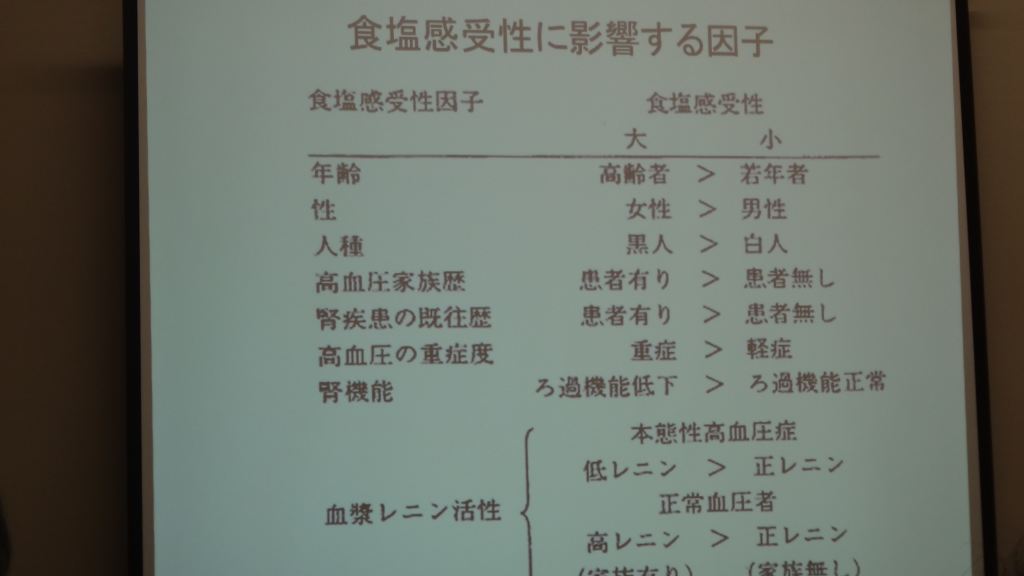 食塩感受性に影響する因子
食塩感受性因子 食塩感受性
大 小
年齢 高齢者 > 若年者
性 女性 > 男性
人種 黒人 > 白人
高血圧家族歴 患者有り > 患者無し
腎疾患の既往歴 患者有り > 患者無し
高血圧の重症度 重症 > 軽症
腎機能 ろ過機能低下 > ろ過機能正常
本態性高血圧症
低レニン > 正レニン
血漿レニン活性 正常血圧者
高レニン > 正レニン
(家族有り) (家族無し)